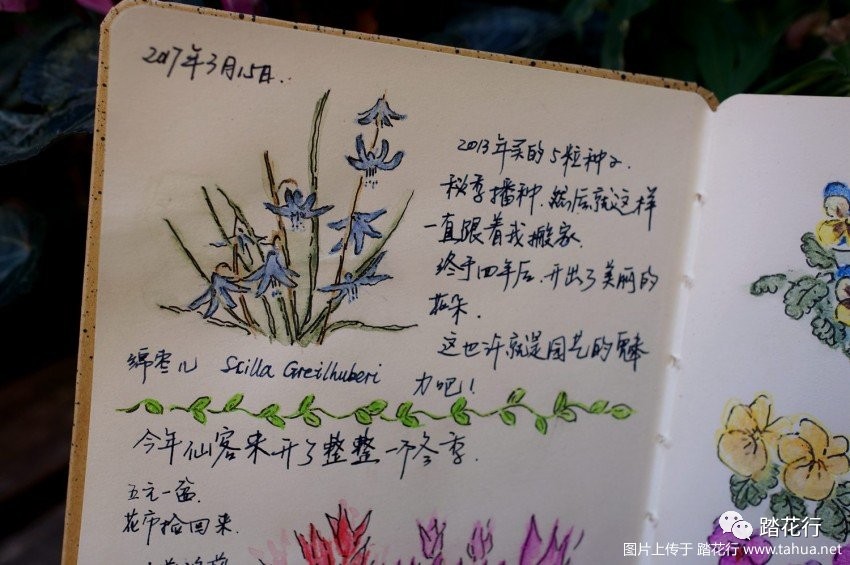 2017年3月15日.
2013年买的5粒种子.
秋季播种.然后就这样
一直跟着我搬家.
终于四年后.开出了美丽的
花朵.
这也许就是园艺的魅
力吧!
绵枣儿 Scilla Greilhuberi
今年仙客来开了整整一个冬季.
五元一盆.
花市捡回来.
踏花行
图片上传于 踏花行 www.tahua.net